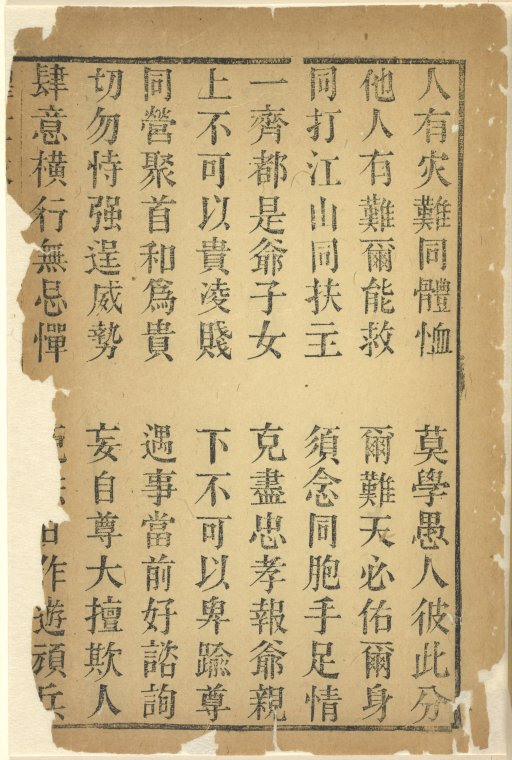 人有灾難同體恤 莫學愚人彼此分
他人有難爾能救 爾難天必佑爾身
同打江山同扶主 須念同胞手足情
一齊都是爺子女 克盡忠孝報爺親
上不可以貴凌賤 下不可以卑踰尊
同營聚首和為貴 遇事當前好諮詢
切勿恃强逞威勢 妄自尊大擅欺人
肆意橫行無忌憚 作遊頑兵